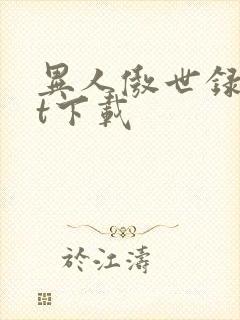 異人傲世錄
t下載
於江濤